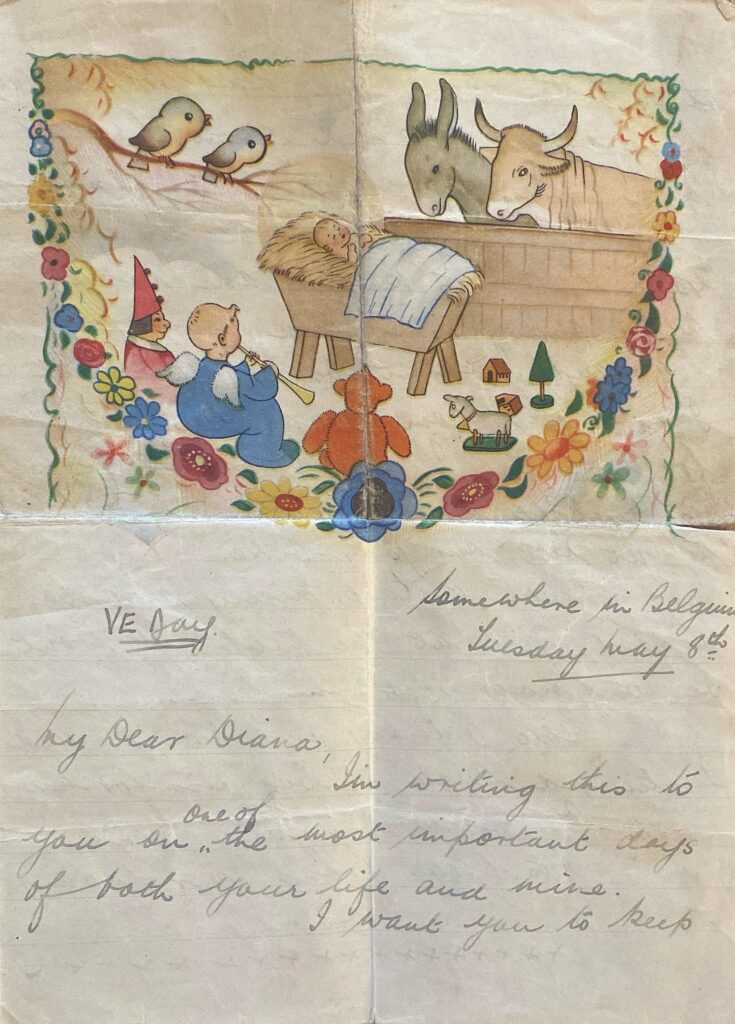 Somewhere in Belgium
VE Day.
Tuesday May 8th
My Dear Diana,
I'm writing this to
one of
you on the most important days
of both your life and mine.
I want you to keep